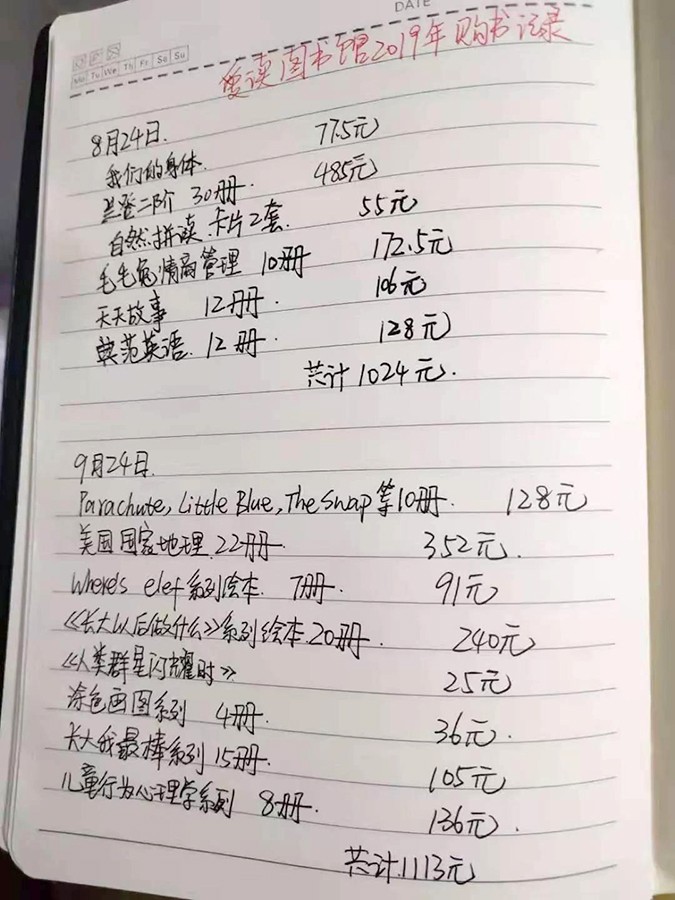 DATE
Mo Tu We Th Fr Sa Su
爱读图书馆2019年购书记录
8月24日.
我们的身体. 77.5元
兰登二阶 30册. 485元
自然拼读 卡片2套. 55元
毛毛兔情商管理 10册 172.5元
天天故事 12册. 106元
典范英语. 12册. 128元
共计1024元.
9月24日.
Parachute, Little Blue, The Swap等10册. 128元
美国国家地理. 22册. 352元.
Where's elef系列绘本. 7册. 91元
《长大以后做什么》系列绘本. 20册. 240元
《人类群星闪耀时》 25元
涂色画图系列 4册. 36元.
长大我最棒系列 15册. 105元
儿童行为心理学系列 8册. 136元.
共计.1113元